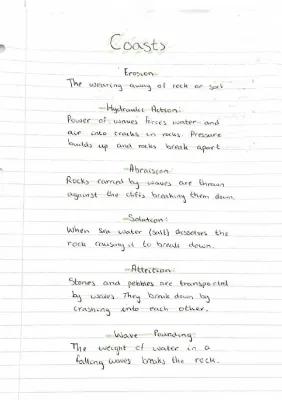 Coasts
Erosion
The wearing away of rock or soil
-Hydraulic Action:
Power of waves forces water and
air into cracks in rocks. Pressure
builds up and rocks break apart
-Abraision:
Rocks carried by waves are thrown
against the cliffs breaking them down.
-Solution:
When sea water (salt) dissolves the
rock causing it to break down.
-Attrition:
Stones and pebbles are transported
by waves. They break down by
crashing into each other.
-Wave Pounding
The weight of water in a
falling waves breaks the rock.